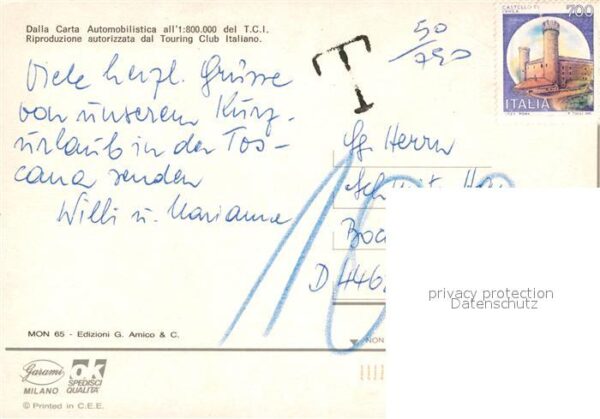 Dalla Carta Automobilistica all'1:800.000 del T.C.I.
Riproduzione autorizzata dal Touring Club Italiano.
T
50
/750
CASTELLO DI
IVREA
700
ITALIA
Viele herzl. Grüsse
von unserem Kurz-
urlaub in der Tos-
cana senden
Willi u. Marianne
Herrn
D 446
privacy protection
Datenschutz
MON 65 - Edizioni G. Amico & C.
NON
Garami
MILANO
ok
SPEDISCI
QUALITA'
© Printed in C.E.E.